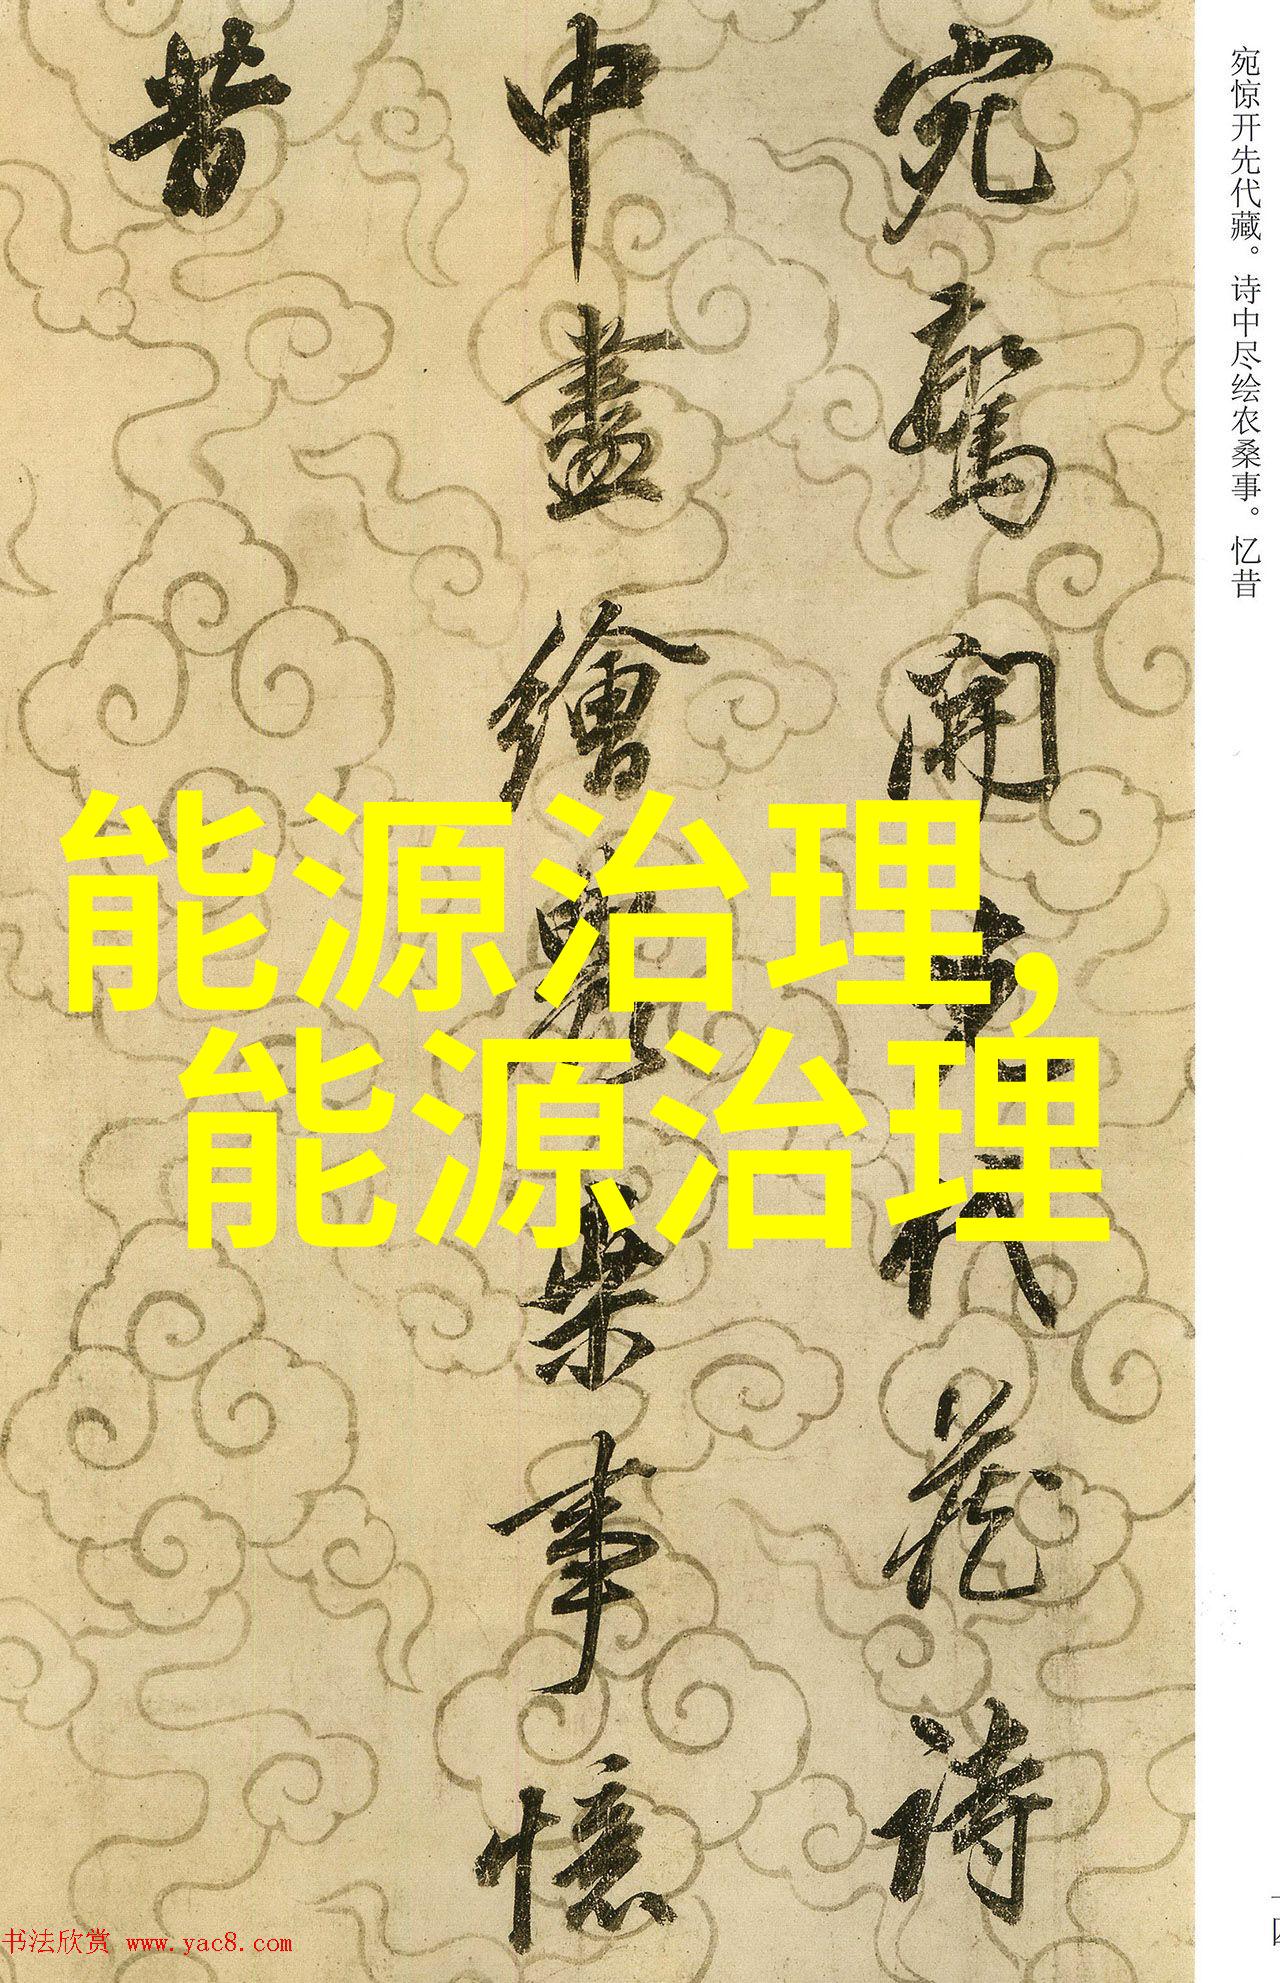 宛驚開先代藏诗
中盡繪農桒事憶
昔
宛惊开先代藏。诗中尽绘农桑事。忆昔
能源治理,
能源治理
书法欣赏 www.yac8.com